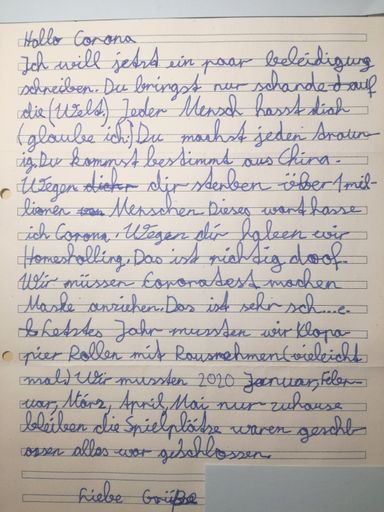 Hallo Corona
Ich will jetzt ein paar beleidigung
schreiben. Du bringst nur schande d auf
die (Welt). Jeder Mensch hasst dich
(glaube ich.) Du machst jeden traur
ig. Du kommst bestimmt aus China.
Wegen dir sterben über 1 mil-
lionen Menschen Dieses wort hasse
ich Corona. Wegen dir haben wir
Homeshalling. Das ist richtig doof.
Wir müssen Coronatest machen
Maske anziehen. Das ist sehr sch...e.
Letztes Jahr mussten wir Klopa
pier Rollen mit Rausnehmen (vieleicht
mal.) Wir mussten 2020 Januar, Feber-
uar, März, April, Mai nur zuhause
bleiben die Spielplätze waren geschl-
ossen alles war geschlossen.
Liebe Grüße